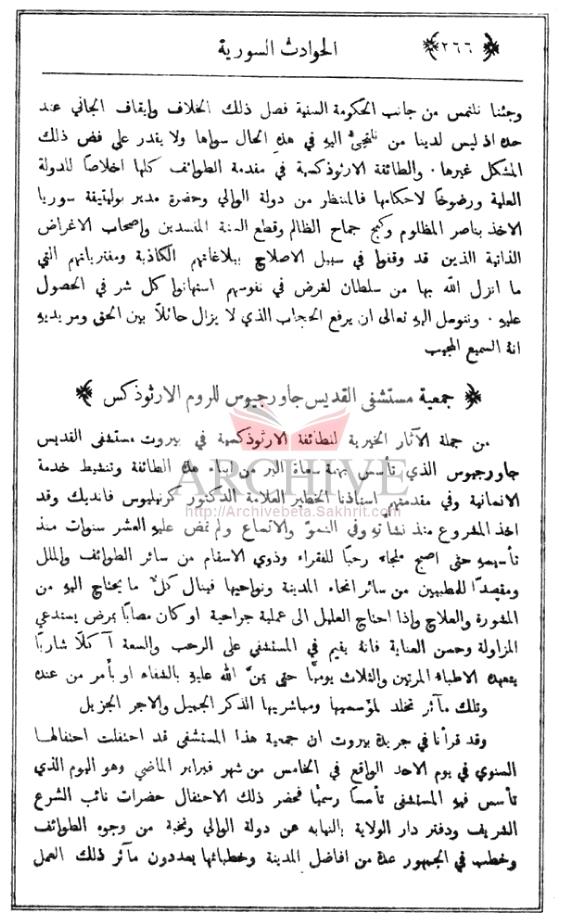 ﴿ ٢٦٦ ﴾
الحوادث السورية
وجئنا نلتمس من جانب الحكومة السنية فصل ذلك الخلاف وإيقاف الجاني عند
حده اذ ليس لدينا من نلتجئ اليه في هذه الحال سواها ولا يقدر على فض ذلك
المشكل غيرها ٠ والطائفة الارثوذكسية في مقدمة الطوائف كلها اخلاصًا للدولة
العلية ورضوخًا لاحكامها فالمنتظر من دولة الوالي وحضرة مدير بوليتيقة سوريا
الاخذ بناصر المظلوم وكبح جماح الظالم وقطع السنة المفسدين واصحاب الاغراض
الذاتية الذين قد وقفوا في سبيل الاصلاح ببلاغاتهم الكاذبة ومفترياتهم التي
ما انزل الله بها من سلطان لغرض في نفوسهم استهانوا كل شر في الحصول
عليه ٠ ونتوسل اليه تعالى ان يرفع الحجاب الذي لا يزال حائلًا بين الحق ومريديه
انه السميع المجيب
﴿ جمعية مستشفى القديس جاورجيوس للروم الارثوذكس ﴾
من جملة الآثار الخيرية للطائفة الارثوذكسية في بيروت مستشفى القديس
جاورجيوس الذي تأسس بهمة سعاة البر من ابناء هذه الطائفة وتنشيط خدمة
الانسانية وفي مقدمتهم استاذنا الخطير العلامة الدكتور كرنيليوس فانديك وقد
اخذ المشروع منذ نشأته وفي النمو والاتساع ولم تمض عليه العشر سنوات منذ
تأسيسه حتى اصبح ملجاء رحبًا للفقراء وذوي الاسقام من سائر الطوائف والملل
ومقصدًا للمطببين من سائر انحاء المدينة ونواحيها فينال كلٌ ما يحتاج اليه من
المشورة والعلاج وإذا احتاج العليل الى عملية جراحية او كان مصابًا بمرض يستدعي
المزاولة وحسن العناية فانه يقيم في المستشفى على الرحب والسعة آكلًا شاربًا
يتعهده الاطباء المرتين والثلاث يوميًا حتى يمنّ الله عليه بالشفاء او بأمر من عنده
وتلك مآثر تخلد لمؤسسيها ومباشريها الذكر الجميل والاجر الجزيل
وقد قرأنا في جريدة بيروت ان جمعية هذا المستشفى قد احتفلت احتفالها
السنوي في يوم الاحد الواقع في الخامس من شهر فبراير الماضي وهو اليوم الذي
تأسس فيه المستشفى تأسسا رسميًا فحضر ذلك الاحتفال حضرات نائب الشرع
الشريف ودفتر دار الولاية بالنيابه عن دولة الوالي ونخبة من وجوه الطوائف
وخطب في الجمهور عدة من افاضل المدينة وخطبائها يعددون مآثر ذلك العمل
ARCHIVE
http://Archivebeta.Sakhrit.com